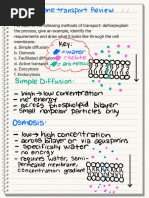 Membrane Transport Review
For each of the following methods of transport: define/explain
the process, give an example, identify the
requirements and draw what it looks like through the cell
membrane.
a. Simple diffusion
b. Osmosis
c. Facilitated diffusion
d. Active transport
e. Exocytosis
f. Endocytosis
Key:
= water
= solute
Simple Diffusion:
- high → low concentration
- no energy
- across phospholipid bilayer
- small nonpolar particles only
Osmosis
- low → high concentration
- across bilayer or via aquaporin
- specifically water
- no energy
- requires water, semi-
permeable membrane,
concentration gradient